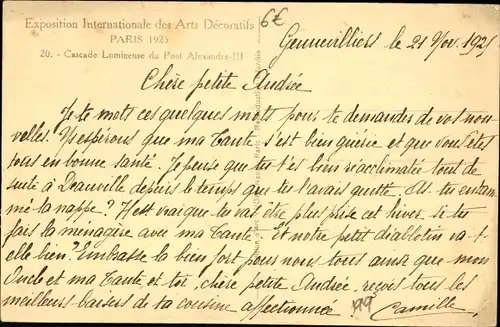 Exposition Internationale des Arts Décoratifs
PARIS 1925
20. - Cascade Lumineuse du Pont Alexandre-III
6€
Gennevilliers le 21 Nov. 1925
Chère petite Andrée
Je te mets ces quelques mots pour te demander de vos nou-
velles. Nespérons que ma Tante s'est bien guérie et que vous êtes
tous en bonne santé. Je pense que tu t'es bien réacclimatée tout de
suite à Deauville depuis le temps que tu l'avais quitté. As-tu entam-
mé la nappe? Il est vrai que tu vas être plus prise cet hiver si tu
fais la ménagère avec ma Tante. Et notre petit diablotin va-t-
elle bien? Embrasse la bien fort pour nous tous ainsi que mon
Oncle et ma Tante et toi, chère petite Andrée, reçois tous les
meilleurs baisers de ta cousine affectionnée
Camille
99